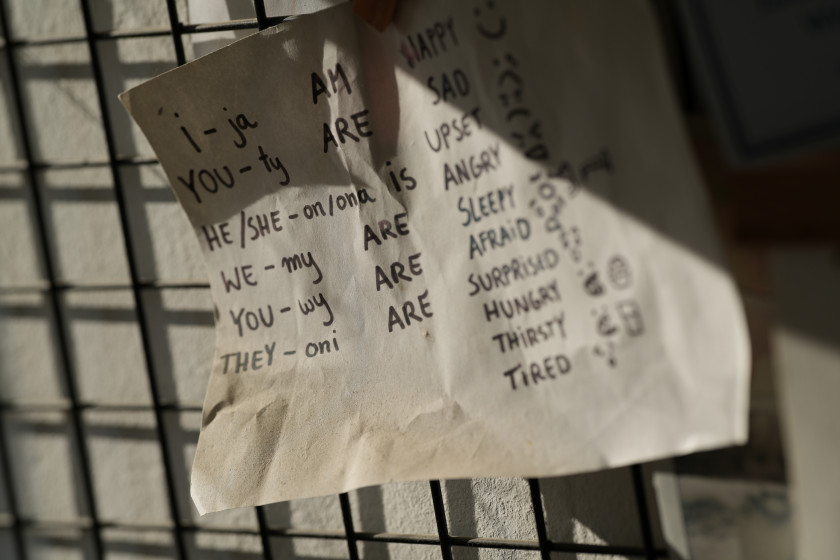 i - ja AM HAPPY
YOU - ty ARE SAD
HE/SHE - on/ona is UPSET
WE - my ARE ANGRY
YOU - wy ARE SLEEPY
THEY - oni ARE AFRAID
SURPRISED
HUNGRY
THIRSTY
TIRED